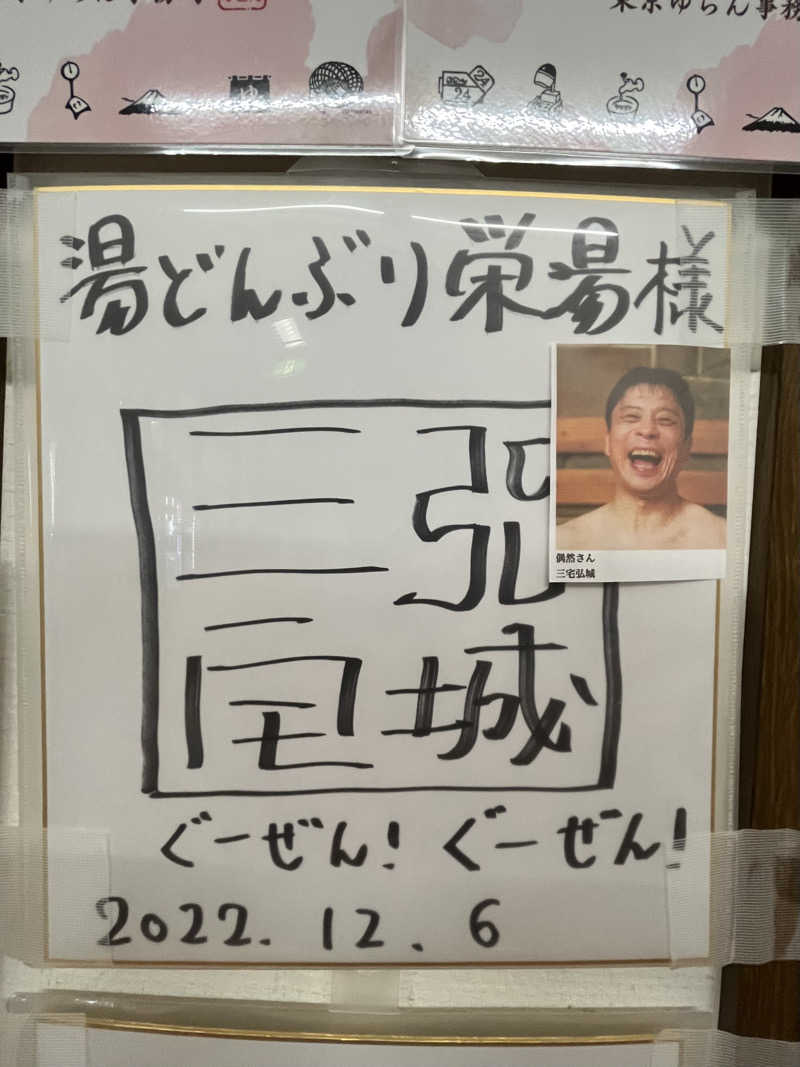 東京ゆらん事務
ゆ
24
湯どんぶり栄湯様
三宅
弘城
偶然さん
三宅弘城
ぐーぜん! ぐーぜん!
2022.12.6